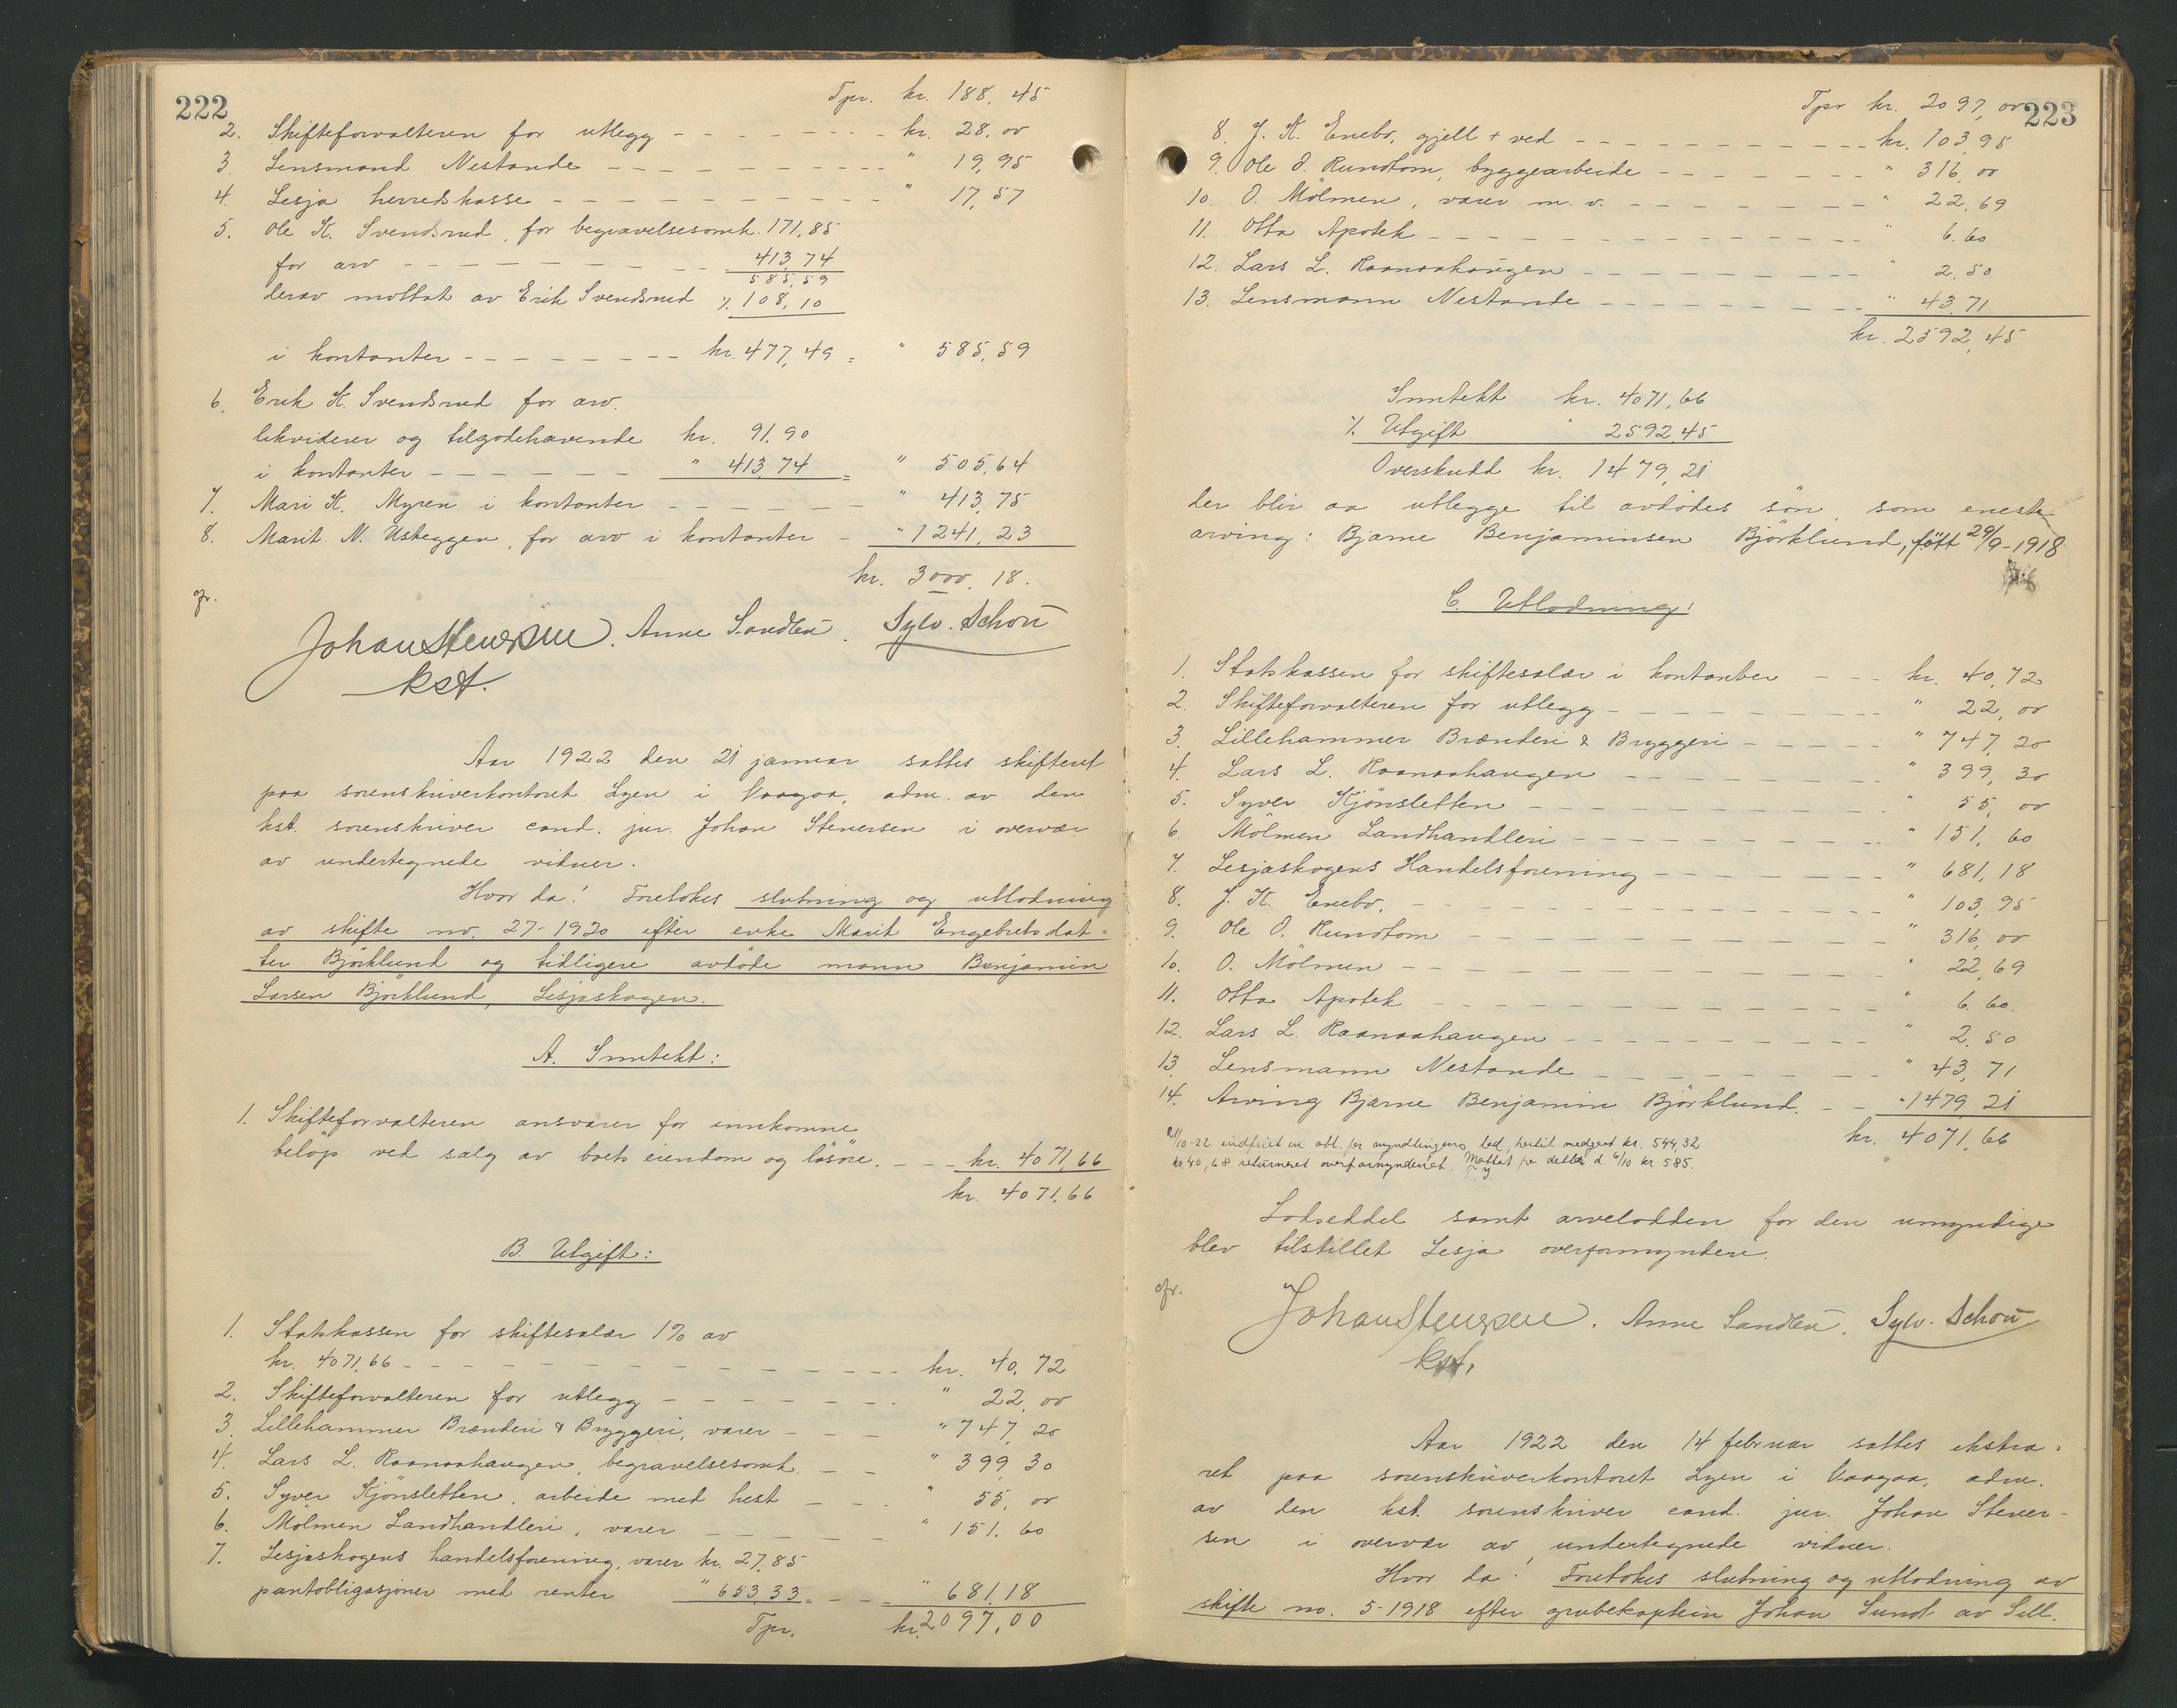 222
Tpr. kr. 188,45
2. Skifteforvalteren for utlegg - - - - - - - - kr. 28,oo
3. Lensmand Nestande - - - - - - - - - - " 19,95
4. Lesja herredskasse - - - - - - - - - - - " 17,57
5. Ole K. Svendsrud, for begravelsesomk. 171,85
for arv - - - - - - - - - - 413,74
585,59
derav mottat av Erik Svendsrud ⁒ 108,10
i kontanter - - - - - - - - kr. 477,49 = " 585,59
6. Erik K. Svendsrud for arv.
likviderer og tilgodehavende kr. 91,90
i kontanter - - - - - - " 413,74 = " 505,64
7. Mari K. Myren i kontanter - - - - - - " 413,75
8. Marit N. Usteggen, for arv i kontanter - " 1241,23
kr. 3000,18.
gr.
Johan Stenersen. Anne Sandbu. Sylv. Schou
kst.
Aar 1922 den 21 januar sattes skifteret
paa sorenskriverkontoret Lyen i Vaagaa, adm. av den
kst. sorenskriver cand. jur. Johan Stenersen i overvær
av undertegnede vidner.
Hvor da! Foretokes slutning og utlodning
av skifte no. 27-1920 efter enke Marit Engebretsdat=
ter Björklund og tidligere avdöde mann Benjamin
Larsen Björklund, Lesjaskogen.
A. Inntekt:
1. Skifteforvalteren ansvarer for innkomne
belöp ved salg av boets eiendom og lösöre. - - - kr. 4071,66
kr. 4071,66
B. Utgift:
1. Statskassen for skiftesalær 1% av
kr. 4071,66 - - - - - - - - - - - - - - - - kr. 40,72
2. Skifteforvalteren for utlegg - - - - - - - " 22,oo
3. Lillehammer Brænderi & Bryggeri, varer - - - " 747,20
4. Lars L. Raanaahaugen, begravelsesomk. - - " 399,30
5. Syver Kjönsletten, arbeide med hest - - - " 55,oo
6. Mölmen Landhandleri, varer - - - - - - " 151,60
7. Lesjaskogens handelsforening, varer kr. 27,85
pantobligasjoner med renter " 653,33 = - - " 681,18
Tpr. kr. 2097,00
223
Tpr kr. 2097,oo
8. J. K. Enebo, gjell + ved - - - - - - - - - - - kr. 103,95
9. Ole O. Rundtom, byggearbeide - - - - - - - - " 316,oo
10. O. Mölmen, varer m. v. - - - - - - - - - " 22,69
11. Otta Apotek - - - - - - - - - - - - - - - " 6,60
12. Lars L. Raanaahaugen - - - - - - - - - - " 2,50
13. Lensmann Nestande - - - - - - - - - - " 43,71
kr. 2592,45
Inntekt kr. 4071,66
⁒ Utgift " 2592,45
Overskudd kr. 1479,21
der blir aa utlegge til avdödes sön, som eneste
arving: Bjarne Benjaminsen Björklund, födt 29/9-1918
C. Utlodning:
1. Statskassen for skiftesalær i kontanter - - - kr. 40,72
2. Skifteforvalteren for utlegg - - - - - - - - - " 22,oo
3. Lillehammer Brænderi & Bryggeri - - - - - " 747,20
4. Lars L. Raanaahaugen - - - - - - - - - " 399,30
5. Syver Kjönsletten - - - - - - - - - - - - " 55,oo
6. Mölmen Landhandleri - - - - - - - - - - " 151,60
7. Lesjaskogens Handelsforening - - - - - - - - " 681,18
8. J. K. Enebo, - - - - - - - - - - - - - - - " 103,95
9. Ole O. Rundtom - - - - - - - - - - - - - " 316,oo
10. O. Mölmen - - - - - - - - - - - - - - - " 22,69
11. Otta Apotek - - - - - - - - - - - - - - " 6,60.
12. Lars L. Raanaahaugen - - - - - - - - - - " 2,50
13. Lensmann Nestande - - - - - - - - - - " 43,71
14. Arving Bjarne Benjamin Björklund. - - " 1479,21
kr. 4071,66
/10-22 indfriet en obl. for myndlingens lod, hertil medgaat kr. 544,32
kr 40,68 returneret overformynderiet. Mottat for dette d. 6/10 kr 585.
Lodseddel samt arvelodden for den umyndige
blev tilstillet Lesja overformynderi.
gr.
Johan Stenersen. Anne Sandbu. Sylv. Schou
kst.
Aar 1922 den 14 februar sattes ekstra=
ret paa sorenskriverkontoret Lyen i Vaagaa, adm.
av den kst. sorenskriver cand. jur. Johan Stener-
sen i overvær av undertegnede vidner.
Hvor da! Foretokes slutning og utlodning av
skifte no. 5-1918 efter grubekaptein Johan Sundt av Lill.